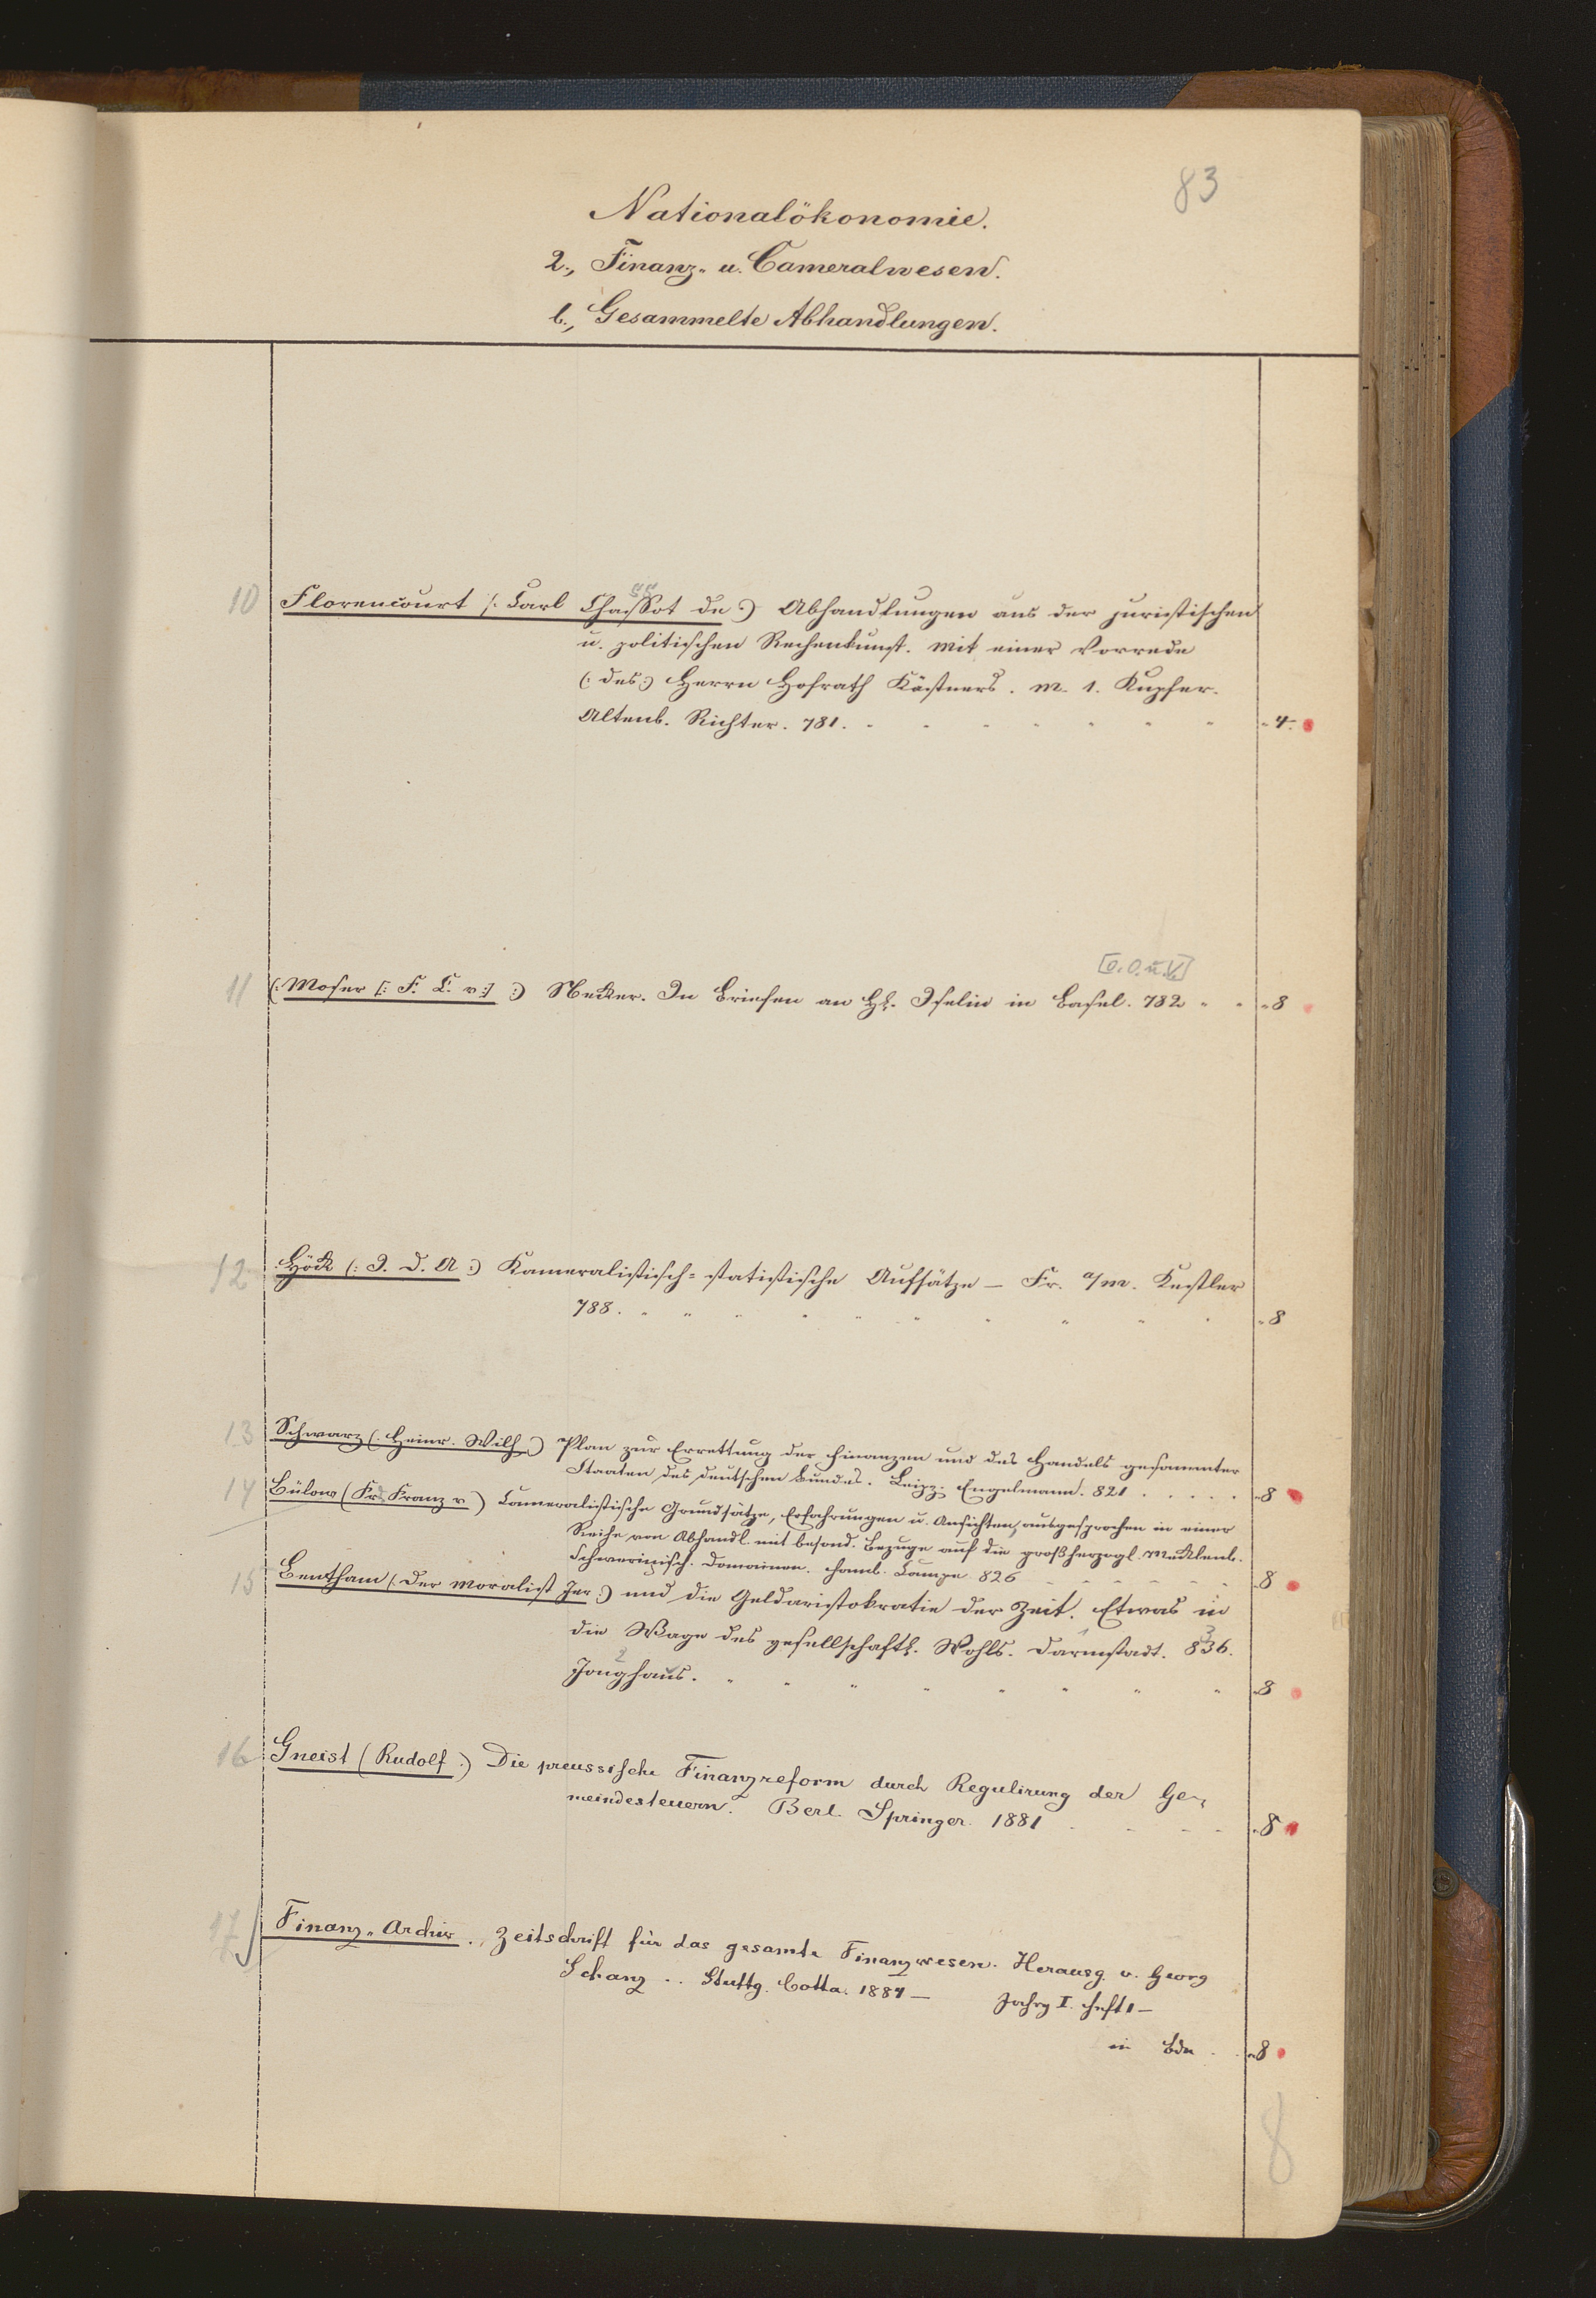 83
Nationalökonomie.
2., Finanz- u. Cameralwesen.
b., Gesammelte Abhandlungen.
10 Florencourt (: Carl Chassot de :) Abhandlungen aus der juristischen
u. politischen Rechenkunst. Mit einer Vorrede
(: des :) Herrn Hofrath Kästners. M. 1. Kupfer.
Altenb. Richter. 781. - 4.
[O. O. u. V.]
11 (: Moser [: F. C. v :] :) Necker. In Briefen an H. Iselin in Basel. 782 - 8
12 Höck (: J. D. A :) Kameralistisch-statistische Aufsätze — Fr. a/m. Kessler
788. - 8
13 Schwarz (: Heinr. Wilh :) Plan zur Errettung der Finanzen und des Handels gesammter
Staaten des deutschen Bundes. Leipz. Engelmann. 821 - 8
14 Bülow (Fr. Franz v) Cameralistische Grundsätze, Erfahrungen u. Ansichten, ausgesprochen in einer
Reihe von Abhandl. mit besond. Bezuge auf die großherzogl. Mecklenb.
Schwerinisch. Domainen. Hamb. Campe 826 - 8
15 Bentham (: Der Moralist Jer :) und die Geldaristokratie der Zeit. Etwas in
die Wage des gesellschaftl. Wohls. Darmstadt. 836.
Jonghaus. - 8
16 Gneist (Rudolf :) Die preussische Finanzreform durch Regulirung der Ge-
meindesteuern. Berl. Springer. 1881 - 8
17 Finanz-Archiv . , Zeitschrift für das gesamte Finanzwesen. Herausg. v. Georg
Schanz . . Stuttg. Cotta. 1884 — Jahrg I. Heft 1 —
in Bdn - 8
8